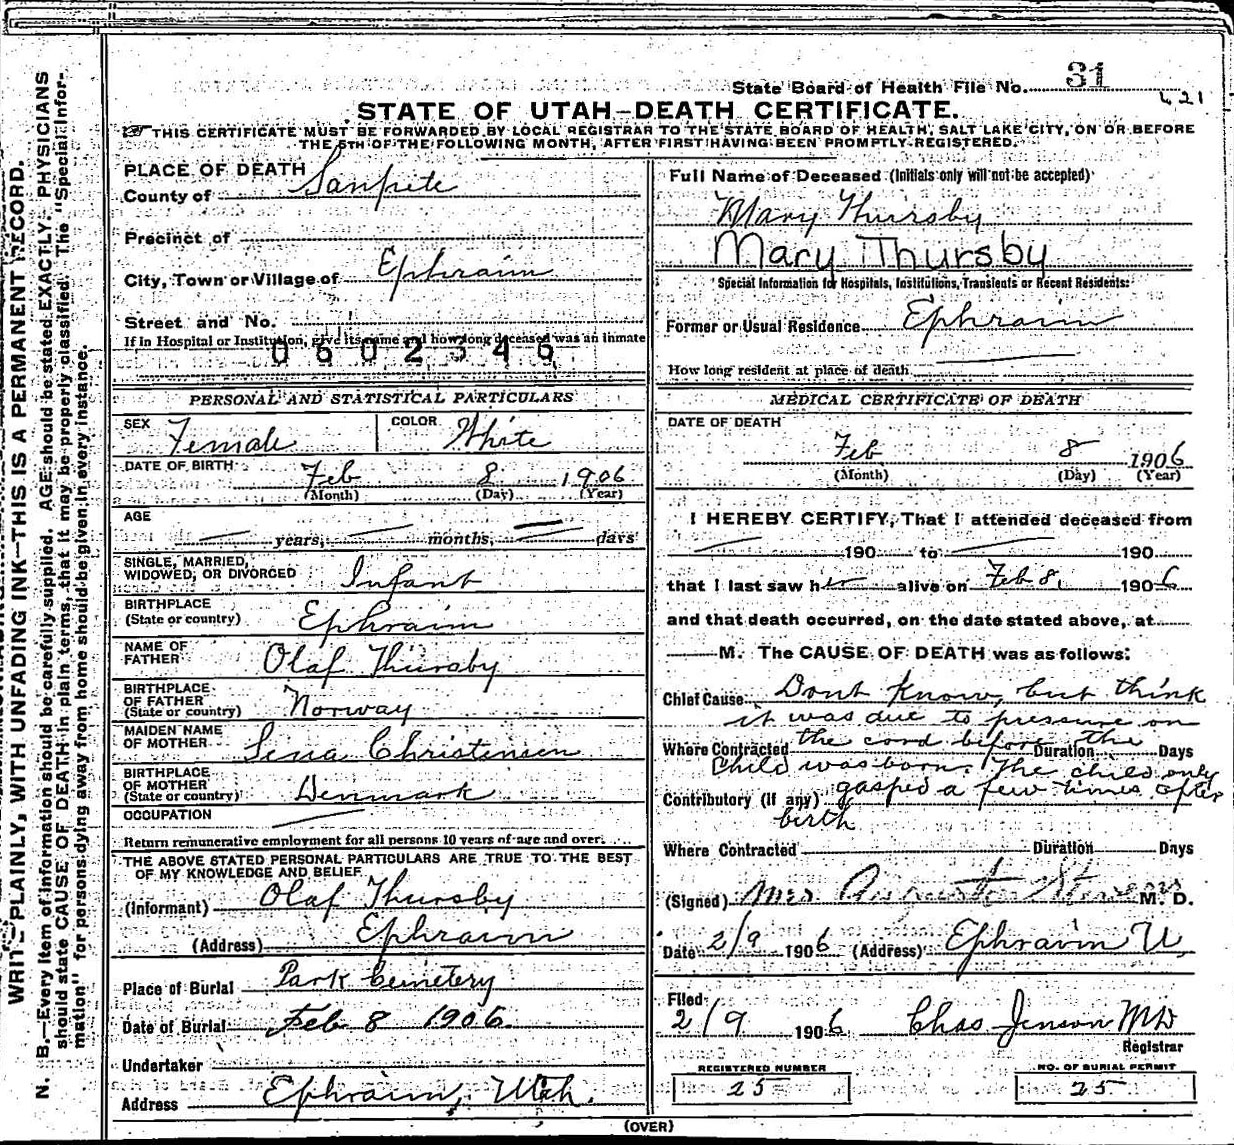 WRITE PLAINLY, WITH UNFADING INK—THIS IS A PERMANENT RECORD.
N. B.—Every item of information should be carefully supplied. AGE should be stated EXACTLY. PHYSICIANS
should state CAUSE OF DEATH in plain terms, that it may be properly classified. The "Special Infor-
mation" for persons dying away from home should be given in every instance.
State Board of Health File No. 31
421
STATE OF UTAH—DEATH CERTIFICATE.
THIS CERTIFICATE MUST BE FORWARDED BY LOCAL REGISTRAR TO THE STATE BOARD OF HEALTH, SALT LAKE CITY, ON OR BEFORE
THE 5TH OF THE FOLLOWING MONTH, AFTER FIRST HAVING BEEN PROMPTLY REGISTERED.
PLACE OF DEATH
County of Sanpete
Precinct of
City, Town or Village of Ephraim
Street and No.
If in Hospital or Institution, give its name and how long deceased was an inmate
0602346
PERSONAL AND STATISTICAL PARTICULARS
SEX Female COLOR White
DATE OF BIRTH Feb 8 1906
(Month) (Day) (Year)
AGE
— years, — months, — days
SINGLE, MARRIED,
WIDOWED, OR DIVORCED Infant
BIRTHPLACE
(State or country) Ephraim
NAME OF
FATHER Olaf Thursby
BIRTHPLACE
OF FATHER
(State or country) Norway
MAIDEN NAME
OF MOTHER Sena Christensen
BIRTHPLACE
OF MOTHER
(State or country) Denmark
OCCUPATION
Return remunerative employment for all persons 10 years of age and over.
THE ABOVE STATED PERSONAL PARTICULARS ARE TRUE TO THE BEST
OF MY KNOWLEDGE AND BELIEF
(Informant) Olaf Thursby
(Address) Ephraim
Place of Burial Park Cemetery
Date of Burial Feb 8 1906.
Undertaker
Address Ephraim, Utah.
Full Name of Deceased (Initials only will not be accepted)
Mary Thursby
Mary Thursby
Special Information for Hospitals, Institutions, Transients or Recent Residents:
Former or Usual Residence Ephraim
How long resident at place of death
MEDICAL CERTIFICATE OF DEATH
DATE OF DEATH
Feb 8 1906
(Month) (Day) (Year)
I HEREBY CERTIFY, That I attended deceased from
— 190 to — 190
that I last saw her alive on Feb 8, 1906
and that death occurred, on the date stated above, at
—M. The CAUSE OF DEATH was as follows:
Chief Cause Dont know, but think
it was due to pressure on
Where Contracted the cord before the Duration Days
child was born. The child only
Contributory (if any) gasped a few times after
birth
Where Contracted Duration Days
(Signed) Mrs Augusta Stevens M. D.
Date 2/9 1906 (Address) Ephraim U
Filed
2/9 1906 Chas Jenson MD
Registrar
REGISTERED NUMBER
25
NO. OF BURIAL PERMIT
25
(OVER)